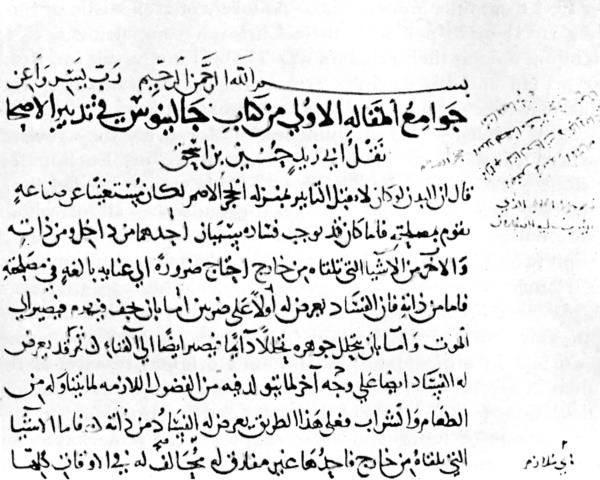 بسم الله الرحمن الرحيم رب يسر واعن
جوامع المقاله الاولى من كتاب جالينوس في تدبير الاصحا
نقل ابي زيد حنين بن اسحق
قال ان البدن لو كان لا يقبل التاثير بمنزله الحجر الاصم لكان مستغنيا عن صناعه
تقوم بمصلحته فلما كان قد يوجب فساده سببان احدهما من داخل من ذاته
والاخر من الاشيا التي تلقاه من خارج احتاج ضرورة الى عنايه بالغه في مصلحته
فاما من ذاته فان الفساد يعرض له أولا على ضربين اما بان يجف فيصير الى
الموت واما بان يتحلل جوهره تحللا دائما فيصير ايضا الى الفناء وقد يعرض
له الفساد ايضا على وجه آخر لما يتولد فيه من الفضول اللازمه لما يتناوله من
الطعام والشراب فعلى هذا الطريق يعرض له الفساد من ذاته فاما الاشيا
التي تلقاه من خارج فاحدها غير مفارق له مخالف له في الاوقات كلها